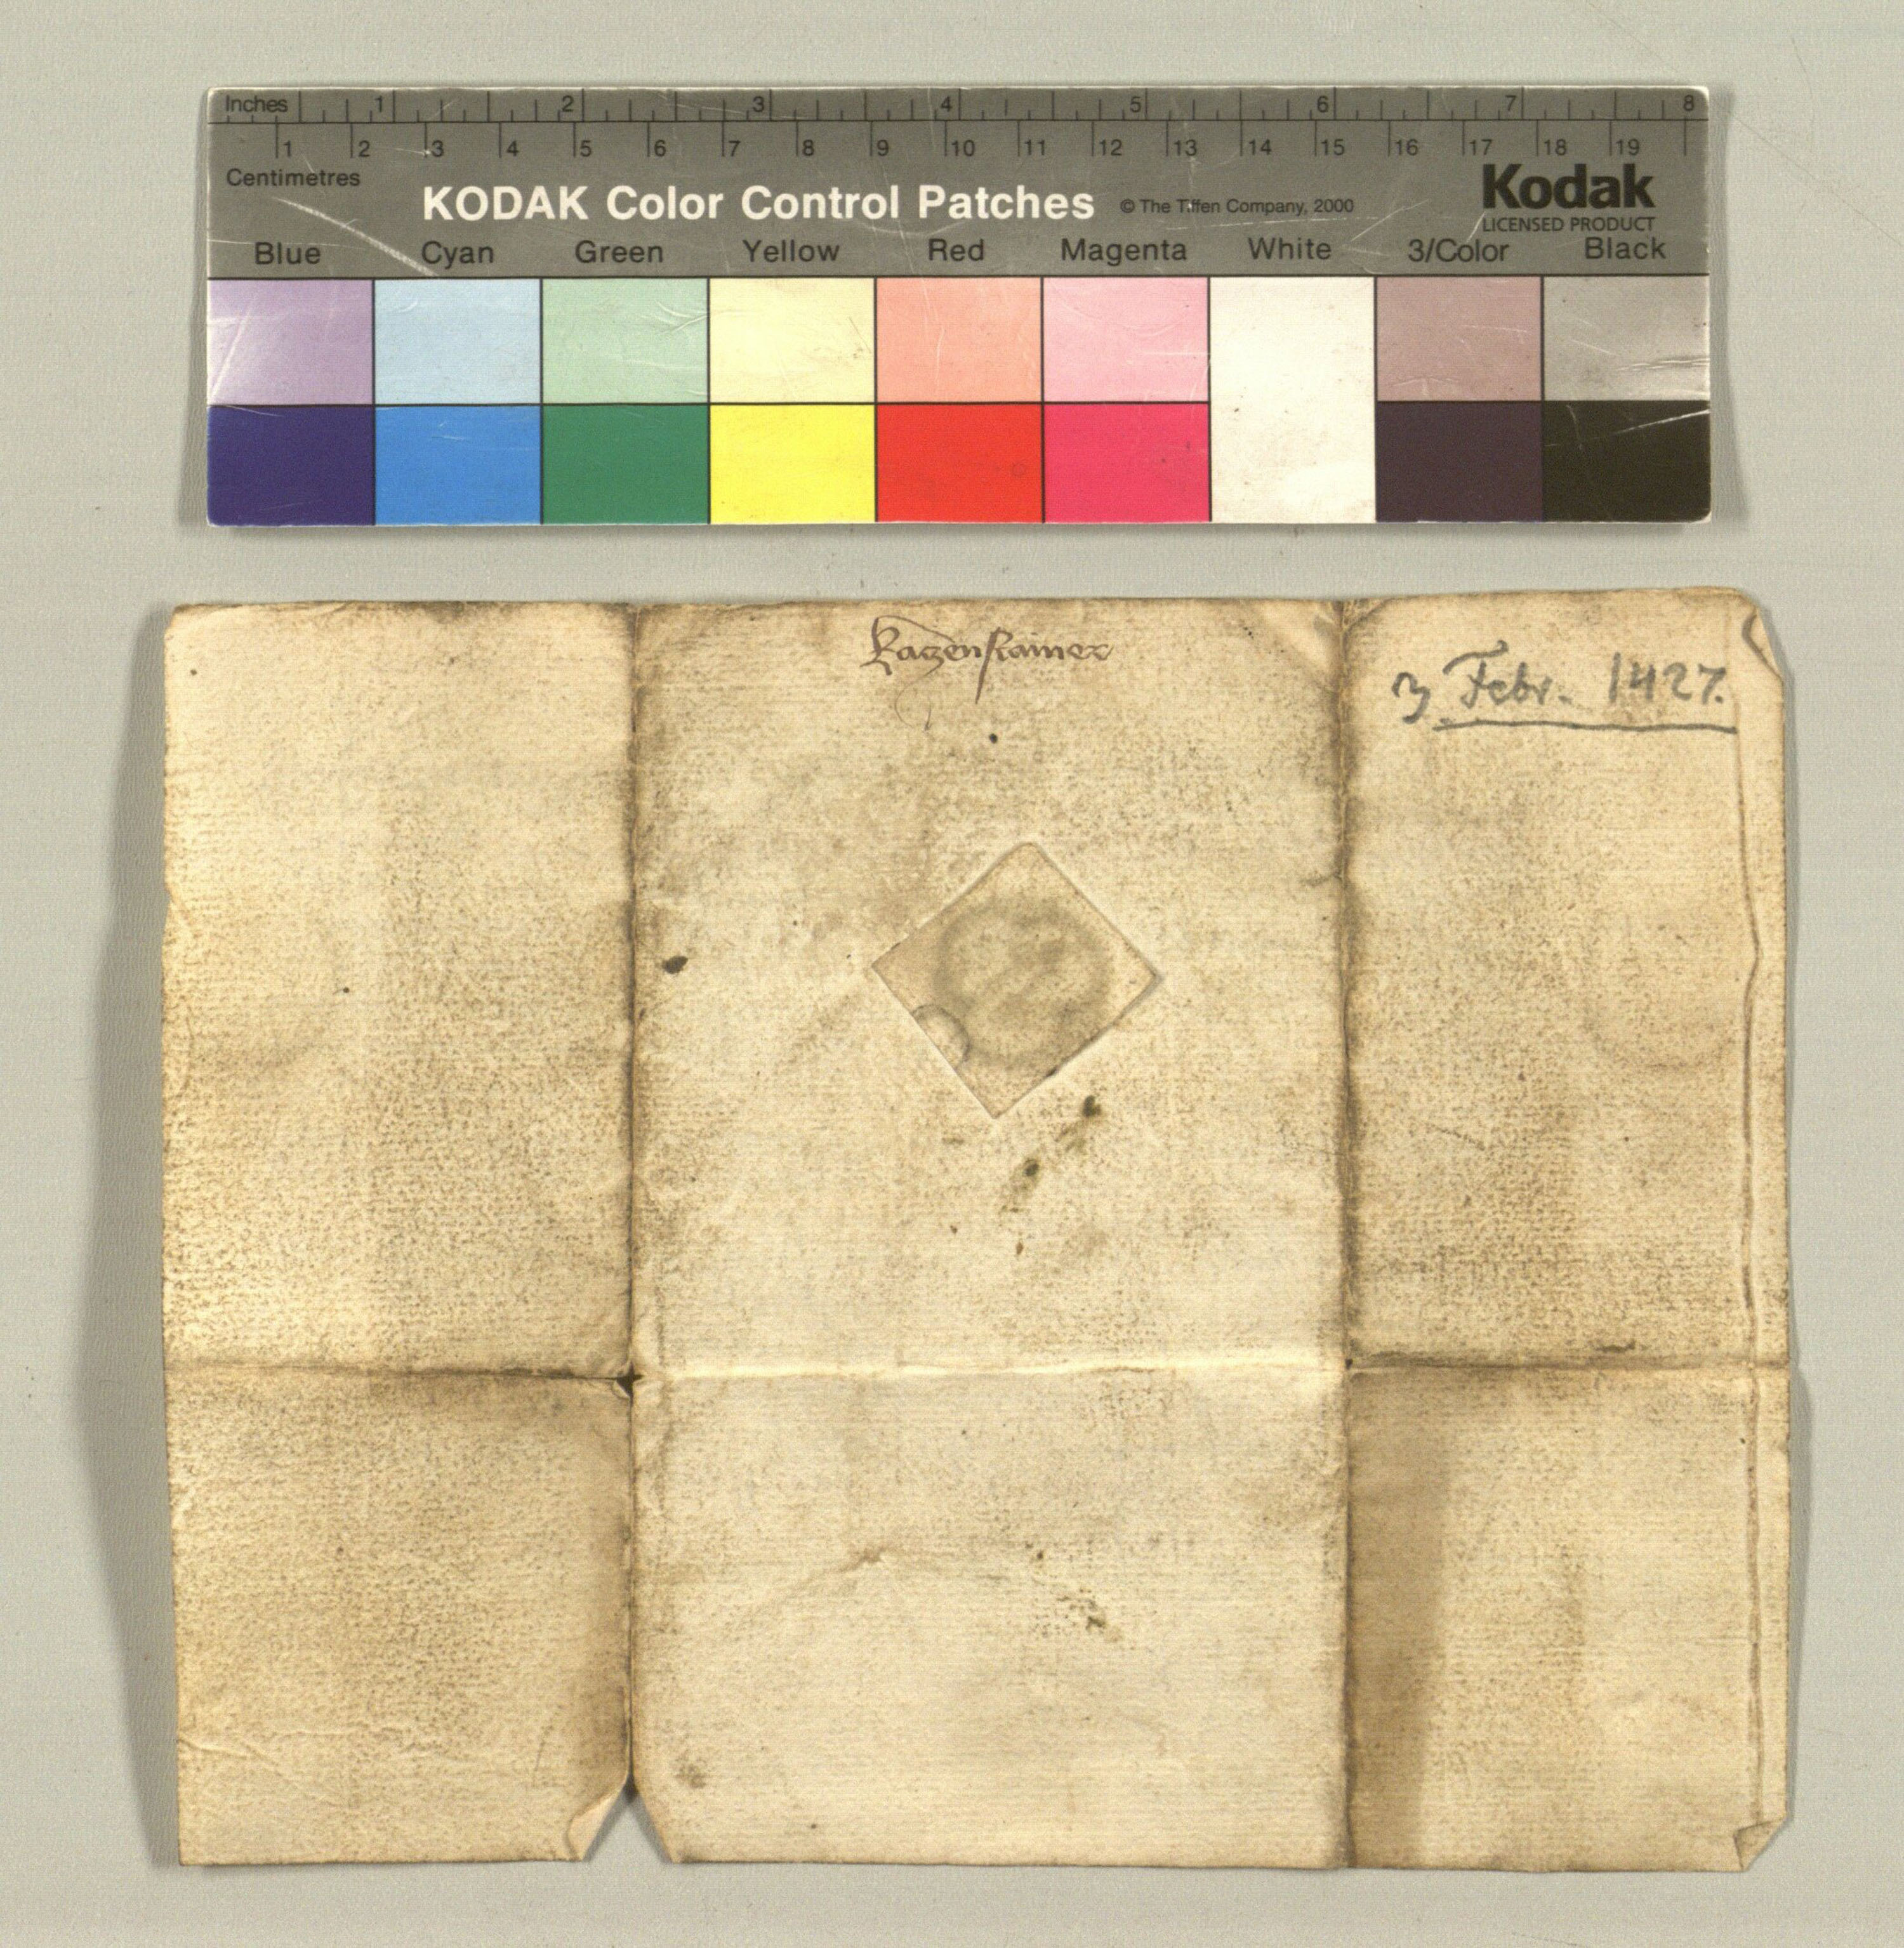 Inches 1 2 3 4 5 6 7 8
1 2 3 4 5 6 7 8 9 10 11 12 13 14 15 16 17 18 19
Centimetres
KODAK Color Control Patches © The Tiffen Company, 2000
Kodak
LICENSED PRODUCT
Blue Cyan Green Yellow Red Magenta White 3/Color Black
Kaczenstainer
3 Febr. 1427.